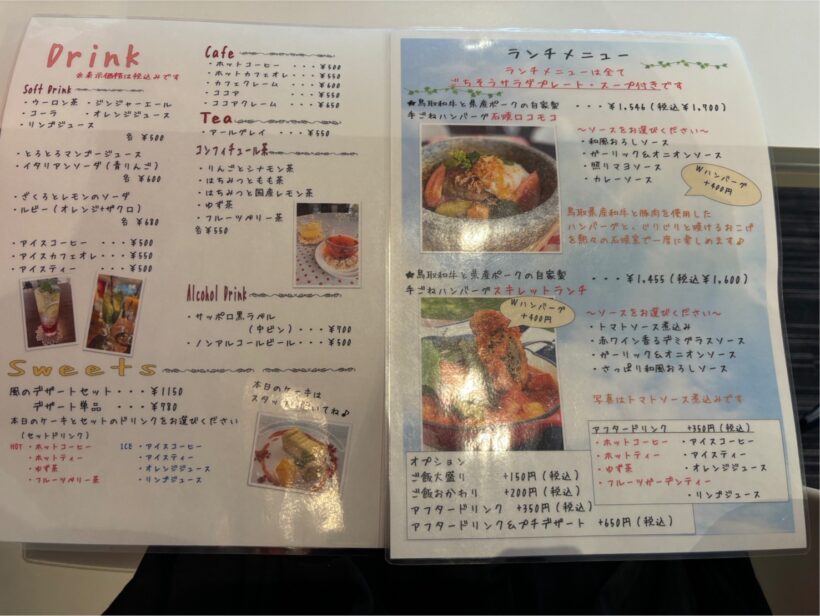 Drink
※表示価格は税込みです
Soft Drink
・ウーロン茶 ・ジンジャーエール
・コーラ ・オレンジジュース
・リンゴジュース
各 ¥500
・とろとろマンゴージュース
・イタリアンソーダ(青りんご)
各 ¥600
・ざくろとレモンのソーダ
・ルビー(オレンジ+ザクロ)
各 ¥680
・アイスコーヒー ・・・ ¥500
・アイスカフェオレ・・・ ¥550
・アイスティー ・・・ ¥500
Sweets
風のデザートセット・・・ ¥1150
デザート単品 ・・・ ¥780
本日のケーキとセットのドリンクをお選びください
(セットドリンク)
HOT ・ホットコーヒー ICE ・アイスコーヒー
・ホットティー ・アイスティー
・ゆず茶 ・オレンジジュース
・フルーツベリー茶 ・リンゴジュース
Cafe
・ホットコーヒー ・・・ ¥500
・ホットカフェオレ・・・ ¥550
・カフェクレーム ・・・ ¥600
・ココア ・・・ ¥550
・ココアクレーム ・・・ ¥650
Tea
・アールグレイ ・・・ ¥550
コンフィチュール茶
・りんごとシナモン茶
・はちみつともも茶
・はちみつと国産レモン茶
・ゆず茶
・フルーツベリー茶
各 ¥550
Alcohol Drink
・サッポロ黒ラベル
(中ビン)・・・ ¥700
・ノンアルコールビール・・・ ¥500
本日のケーキは
ランチメニュー
ランチメニューは全て
ごちそうサラダプレート・スープ付きです
★鳥取和牛と県産ポークの自家製 ・・・ ¥1,546(税込¥1,700)
手ごねハンバーグ石焼ロコモコ
～ソースをお選びください～
・和風おろしソース
・ガーリック&オニオンソース
・照りマヨソース
・カレーソース
Wハンバーグ
+400円
鳥取県産和牛と豚肉を使用した
ハンバーグと、じりじりと焼けるおこげ
を熱々の石焼釜で一度に楽しめます♪
★鳥取和牛と県産ポークの自家製 ・・・ ¥1,455(税込¥1,600)
手ごねハンバーグスキレットランチ
Wハンバーグ
+400円
～ソースをお選びください～
・トマトソース煮込み
・赤ワイン香るデミグラスソース
・ガーリック&オニオンソース
・さっぱり和風おろしソース
写真はトマトソース煮込みです
オプション
ご飯大盛り +150円(税込)
ご飯おかわり +200円(税込)
アフタードリンク +350円(税込)
アフタードリンク&プチデザート +650円(税込)
アフタードリンク +350円(税込)
・ホットコーヒー ・アイスコーヒー
・ホットティー ・アイスティー
・ゆず茶 ・オレンジジュース
・フルーツガーデンティー
・リンゴジュース